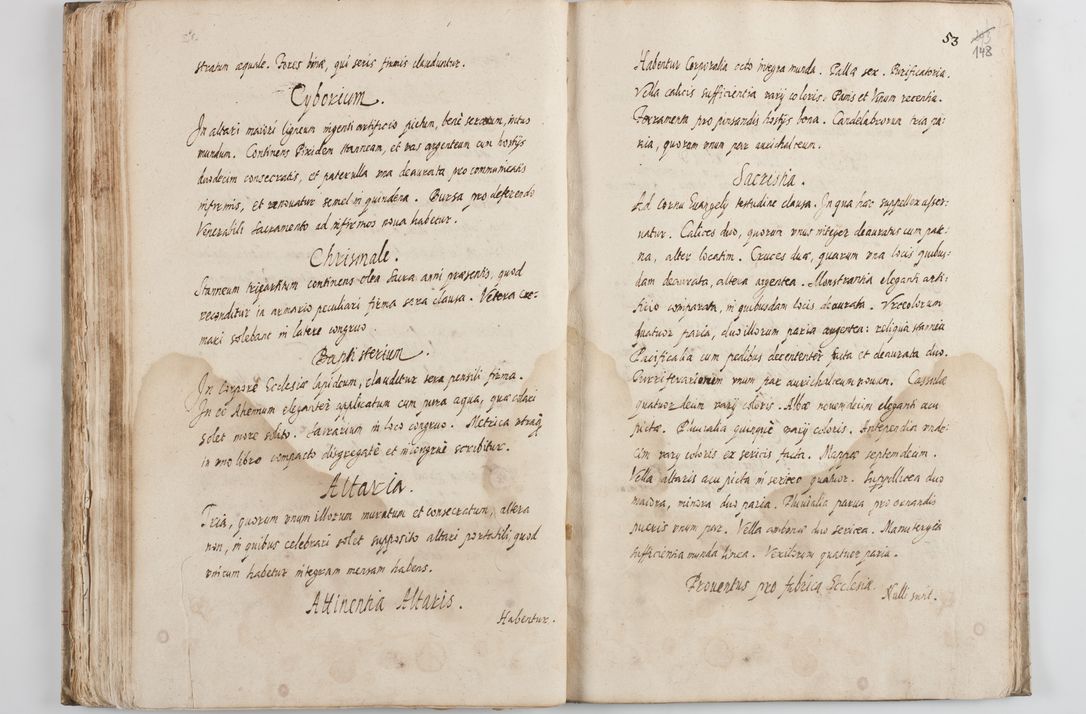 stratum aequale. Fores bonae, qui seris firmis clauduntur.
Cyborium.
In altari maiori ligneum ingenti artificio pictum, benè seratum, intus
mundum. Continens Pixidem stanneam, et vas argenteum cum hostÿs
duodecim consecratis, et paterulla una deaurata pro communicatis
infirmis, et renovatur semel in quindena. Bursa pro deferendo
Venerabili Sacramento ad infirmos noua habetur.
Chrismale.
Stanneum tripartitum continens olea sacra anni praesentis, quod
reconditur in armario peculiari firma sera clausa. Vetera cre=
mari solebant in latere congruo.
Baptisterium.
In corpore Ecclesiae lapideum, clauditur sera pensili firma.
In eo Ahenum eleganter applicatum cum pura aqua, quae colari
solet more solito. Sacrarium in loco congruo. Metrica utraq
in uno libro compacto disgregatè et incongruè scribitur.
Altaria.
Tria, quorum unum illorum muratum et consecratum, altera
non, in quibus celebrari solet supposito altari portatili, quod
unicum habetur integram mensam habens.
Attinentia Altaris.
Habentur.
53
148
Habentur Corporalia octo integra munda. Palla sex. Purificatoria.
Vella calicis sufficientia varÿ coloris. Panis et Vinum recentia.
Ferramenta pro pinsandis hostÿs bona. Candelabrorum tria pa=
ria, quorum unum par aurichalceum.
Sacristia.
Ad cornu Evangelÿ testudine clausa. In qua haec suppellex asser=
vatur. Calices duo, quorum unus integer deauratus cum pate=
na, alter locatim. Cruces duae, quarum una locis quibus=
dam deaurata, altera argentea. Monstrantia eleganti arti=
ficio comparata, in quibusdam locis deaurata. Vrceolorum
quatuor paria, duo illorum paria argentea: reliqua stannea
Pacificalia cum pedibus decententer facta et deaurata duo.
unum par aurichalceum nouum. Casulae
quatuor decim varÿ coloris. Albae nouemdecim eleganti acu
pictae. Pluvialia quinque varÿ coloris. Antependia unde=
cim varÿ coloris ex sericis facta. Mappae septemdecim.
Vella altaris acu picta in sericeo quatuor. Suppellicea duo
maiora, minora duo paria. Pluvialia parua pro ornandis
pueris unum par. Vella duo sericea. Manutergia
sufficientia munda linea. Vexillorum quatuor paria.
Prouentus pro fabrica Ecclesiae.
Nulli sunt.